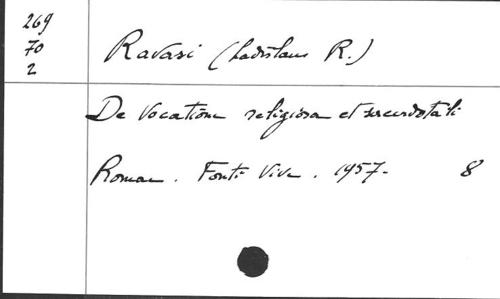 269
70
2
Ravasi (Ladislaus R.)
De vocatione religiosa et sacerdotali
Romae. Fonti Vive. 1957. 8